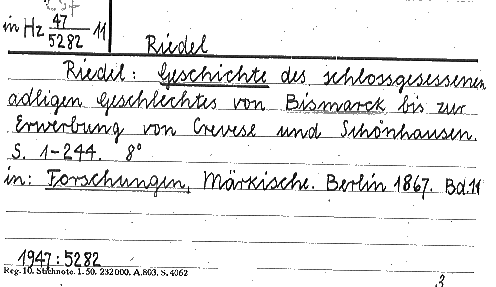 in Hz 47/5282 11
Riedel
Riedel: Geschichte des schlossgesessenen
adligen Geschlechtes von Bismarck bis zur
Erwerbung von Crevese und Schönhausen.
S. 1-244. 8°
in: Forschungen, Märkische. Berlin 1867. Bd. 11
1947:5282
Reg. 10. Stichnote. 1. 50. 232000. A.803. S. 4062
3